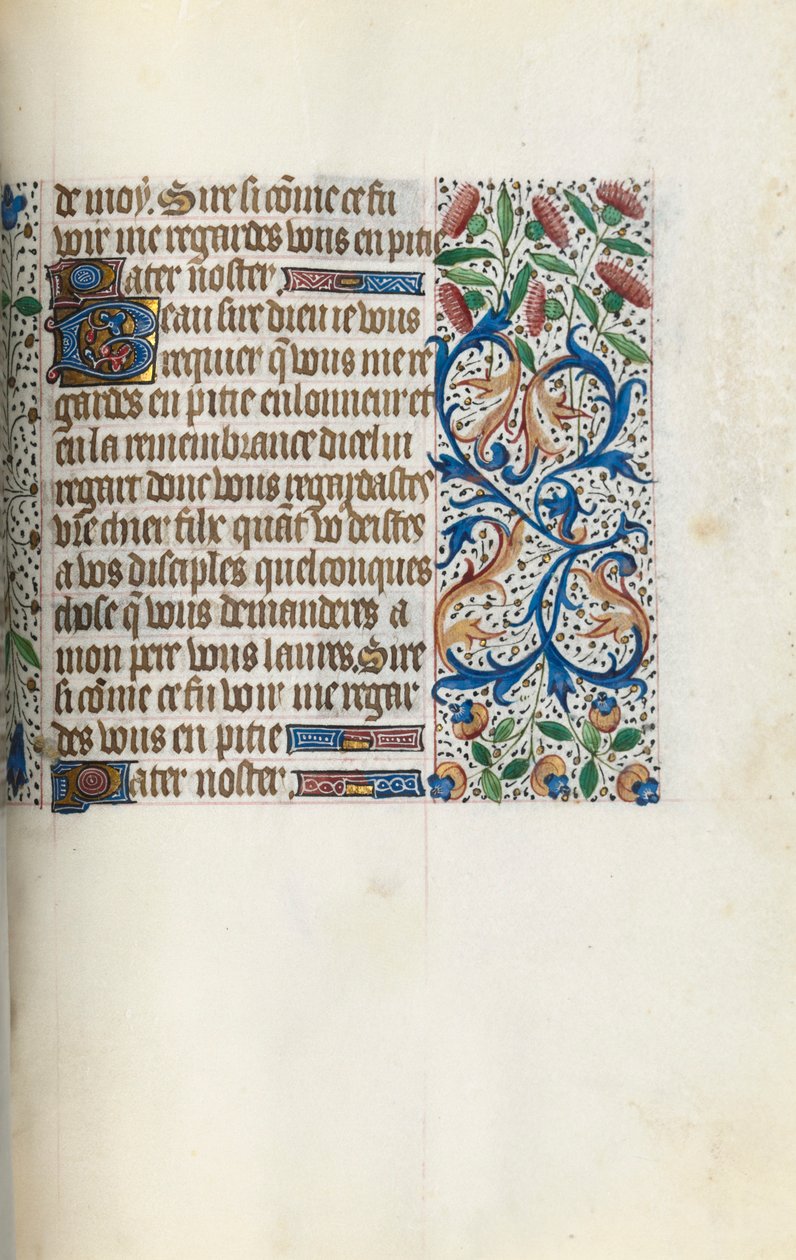 de moy. Sire si cõme ce fu
voir me regardes vous en pitie
Pater noster.
Beau sire dieu ie vous
requier q̃ vous me re
gardes en pitie en lonneur et
en la remembrance dicelui
regart donc vous regardastes
vr̃e chier filz quãt vo deistes
a vos disciples quelconques
chose q̃ vous demanderes a
mon pere vous laures. Sire
si cõme ce fu voir me regar
des vous en pitie
Pater noster.